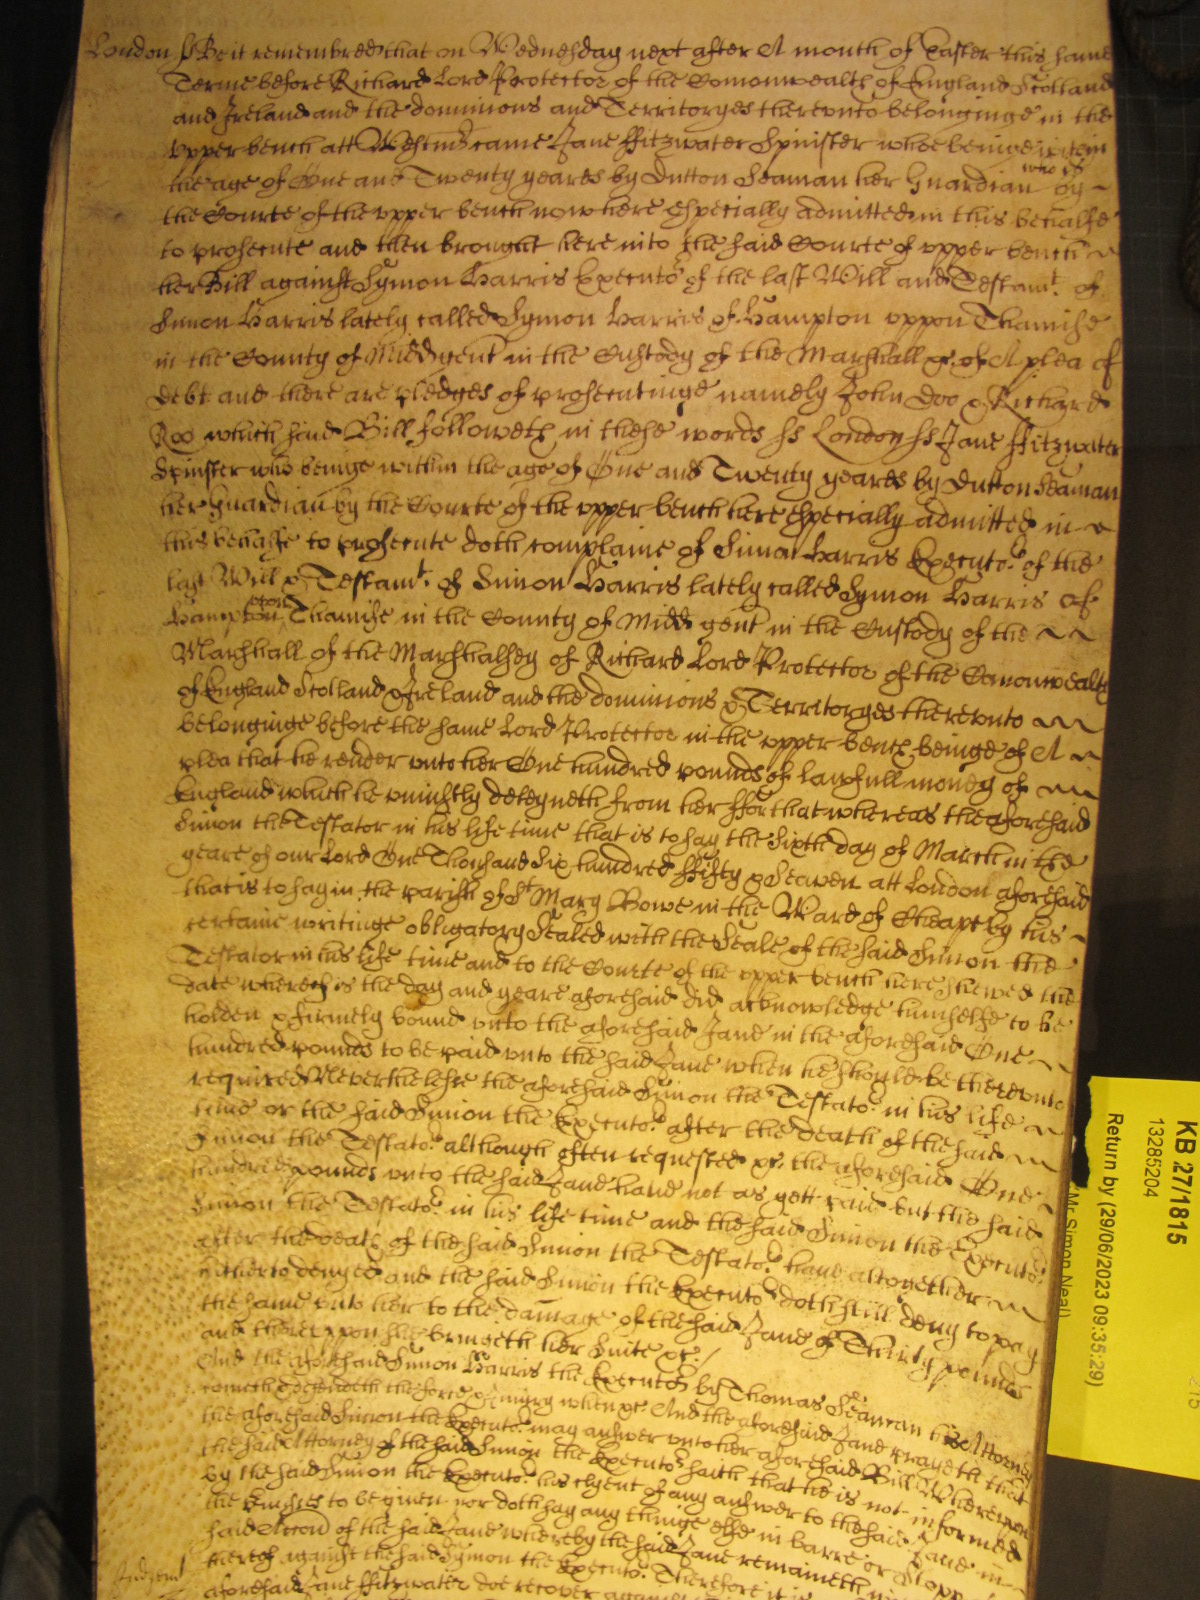 London ss Be it remembred that on Wednesday next after A month of Easter this same
Terme before Richard Lord Protector of the Comonwealth of England Scotland
and Ireland and the dominions and Territoryes therevnto belonginge in the
vpper bench att Westm̃ came Jane ffitzwater Spinster whoe beinge within
the age of One and Twenty yeares by Dutton Seaman her Guardian who is by
the Courte of the vpper bench now here especially admitted in this behalfe
to prosecute and then brought here into the said Courte of vpper bench
her Bill against Symon Harris Executor of the last Will and Testamt. of
Simon Harris lately called Symon Harris of Hampton vppon Thamise
in the County of Midd gent in the Custody of the Marshall &c. of A plea of
debt and there are pledges of prosecutinge namely John Doo & Richard
Roo which said Bill followeth in these words ss London ss Jane ffitzwater
Spinster who beinge within the age of One and Twenty yeares by Dutton Seaman
her Guardian by the Courte of the vpper bench here especially admitted in
this behalfe to prosecute doth complaine of Simon Harris Executor. of the
last Will & Testamt. of Simon Harris lately called Symon Harris of
Hampton vpon Thamise in the County of Midd gent in the Custody of the
Marshall of the Marshalsey of Richard Lord Protector of the Comonwealth
of England Scotland & Ireland and the dominions & Territoryes therevnto
belonginge before the same Lord Protector in the vpper bench beinge of A
plea that he render vnto her One hundred pounds of lawfull money of
England which he vniustly deteyneth from her ffor that whereas the aforesaid
Simon the Testator in his life time that is to say the Sixth day of March in the
yeare of our Lord One Thousand Six hundred ffifty & Seaven att London aforesaid
that is to say in the parish of St Mary Bowe in the Ward of Cheape by his
certaine writinge obligatory Sealed with the Seale of the said Simon the
Testator in his life time and to the Courte of the vpper bench here shewed the
date whereof is the day and yeare aforesaid did acknowledge himselfe to be
holden & firmely bound vnto the aforesaid Jane in the aforesaid One
hundred pounds to be paid vnto the said Jane when he should be therevnto
required Neverthelesse the aforesaid Symon the Testator. in his life
time or the said Simon the Executor. after the death of the said
Simon the Testator. although often requested &c. the aforesaid One
hundred pounds vnto the said Jane haue not as yett paid but the said
Simon the Testator. in his life time and the said Simon the Executor.
after the death of the said Simon the Testator. haue altogether
hitherto denyed and the said Simon the Executor. doth still deny to pay
the same vnto her to the damage of the said Jane of Thirty pounds
and therevppon shee bringeth her Suite &c./
And the aforesaid Simon Harris the Executor by Thomas Seaman his Attorney
cometh & defendeth the force & iniury when &c And the aforesaid Jane prayeth that
the aforesaid Simon the Executor. may answer vnto her aforesaid Bill Wherevpon
the said Attorney of the said Simon the Executor. saith that he is not informed
by the said Simon the Executor. his clyent of any answer to the said Jane in
the premises to be giuen nor doth say any thinge else in barre or
said Accon of the said Jane whereby the said Jane remaineth
thereof against the said Symon the Executor. Therefore it is
aforesaid Jane ffitzwater doe recover against
KB 27/1815
13285204
Return by (29/06/2023 09:35:29)
(Mr Simon Neal)